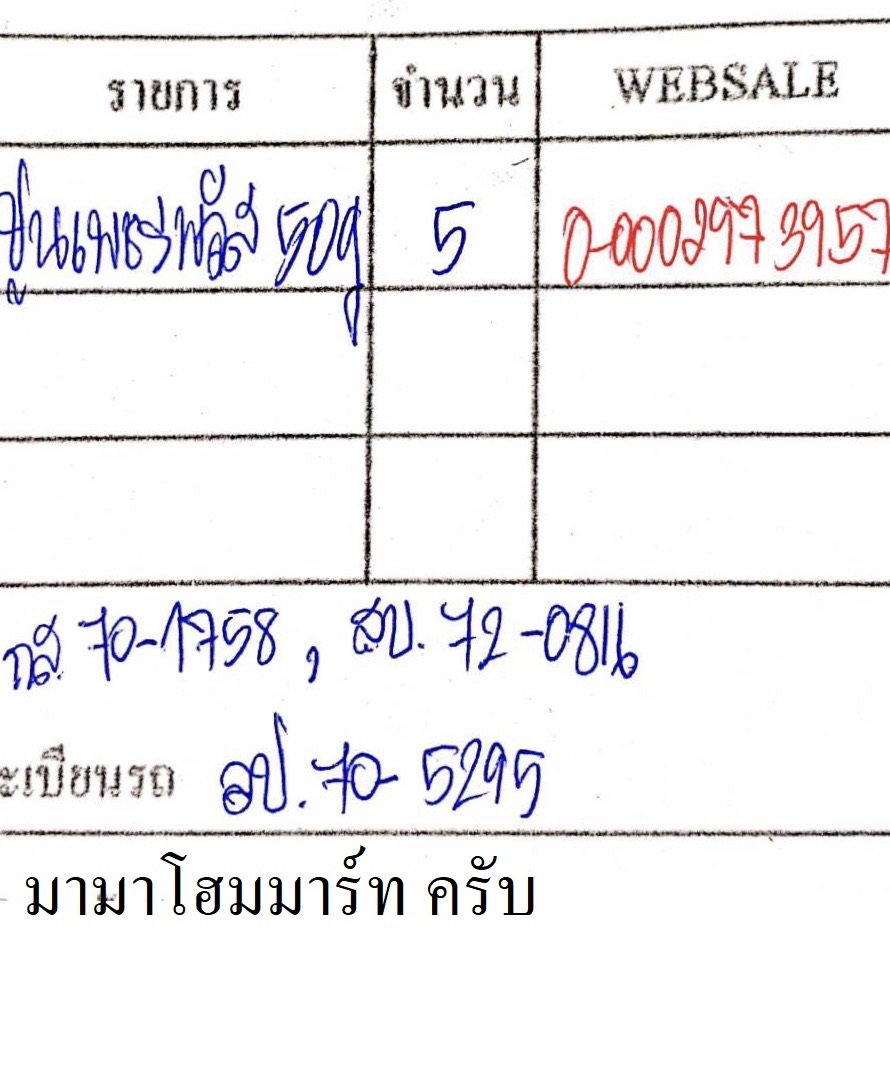 รายการ จำนวน WEBSALE
ปูนเพชรพลัส 50g 5 0-0002973957
กส. 70-1758 , สบ. 72-081
ะเบียนรถ อป. 70-5295
มามาโฮมมาร์ท ครับ